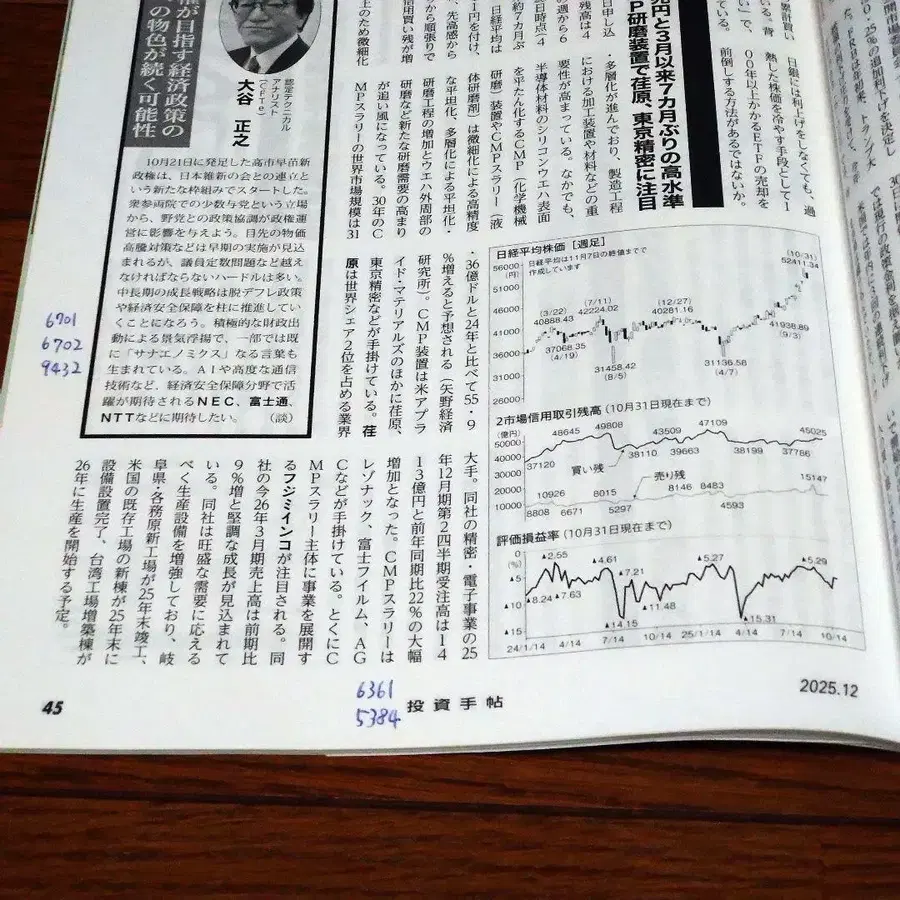 兆円と3月以来7カ月ぶりの高水準
MP研磨装置で荏原、東京精密に注目
日銀には利上げをしなくても、過
熱した株価を冷やす手段として1
00年以上かかるETFの売却を
前倒しする方法があるではないか。
・多層化が進んでおり、製造工程
における加工装置や材料などの重
要性が高まっている。なかでも、
半導体材料のシリコンウエハ表面
を平たん化するCMP(化学機械
研磨)装置やCMPスラリー(液
体研磨剤)は微細化による高精度
な平坦化、多層化による平坦化・
研磨工程の増加とウエハ外周部の
研磨など新たな研磨需要の高まり
が追い風になっている。30年のC
MPスラリーの世界市場規模は31
・36億ドルと24年と比べて55・9
%増えると予想される(矢野経済
研究所)。CMP装置は米アプラ
イド・マテリアルズのほかに荏原、
東京精密などが手掛けている。荏
原は世界シェア2位を占める業界
大手。同社の精密・電子事業の25
年12月期第2四半期受注高は14
13億円と前年同期比22%の大幅
増加となった。CMPスラリーは
レゾナック、富士フイルム、AG
Cなどが手掛けている。とくにC
MPスラリー主体に事業を展開す
るフジミインコが注目される。同
社の今26年3月期売上高は前期比
9%増と堅調な成長が見込まれて
いる。同社は旺盛な需要に応える
べく生産設備を増強しており、岐
阜県・各務原新工場が25年末竣工、
米国の既存工場の新棟が25年末に
設備設置完了、台湾工場増築棟が
26年に生産を開始する予定。
権が目指す経済政策の
の物色が続く可能性
認定テクニカル
アナリスト
(CFTe)
大谷 正之
10月21日に発足した高市早苗新
政権は、日本維新の会との連立と
いう新たな枠組みでスタートした。
衆参両院での少数与党という立場
から、野党との政策協調が政権運
営に影響を与えよう。目先の物価
高騰対策などは早期の実施が見込
まれるが、議員定数問題など越え
なければならないハードルは多い。
中長期の成長戦略は脱デフレ政策
や経済安全保障を柱に推進してい
くことになろう。積極的な財政出
動による景気浮揚で、一部では既
に「サナエノミクス」なる言葉も
生まれている。AIや高度な通信
技術など、経済安全保障分野で活
躍が期待されるNEC、富士通、
NTTなどに期待したい。(談)
6701
6702
9432
日経平均株価[週足]
日経平均は11月7日の終値までで
作成しています
56000
(円)
51000
46000
41000
36000
31000
26000
(3/22)
40888.43
(7/11)
42224.02
(12/27)
40281.16
(10/31)
52411.34
37068.35
(4/19)
31458.42
(8/5)
31136.58
(4/7)
41938.89
(9/3)
2市場信用取引残高(10月31日現在まで)
(億円)
50000
40000
30000
20000
10000
0
48645 49808 43509 47109 45025
37120 38110 39663 38199 37766
買い残
売り残
10926 8015 8146 8483 15147
8808 6671 5297 4593
評価損益率(10月31日現在まで)
0
(%)
▲5
▲10
▲15
▲2.55 ▲4.61 ▲7.21 ▲5.27 ▲5.29
▲8.24 ▲7.63 ▲14.15 ▲11.48 ▲15.31
24/1/14 4/14 7/14 10/14 25/1/14 4/14 7/14 10/14
45
6361
5384
投資手帖
2025.12